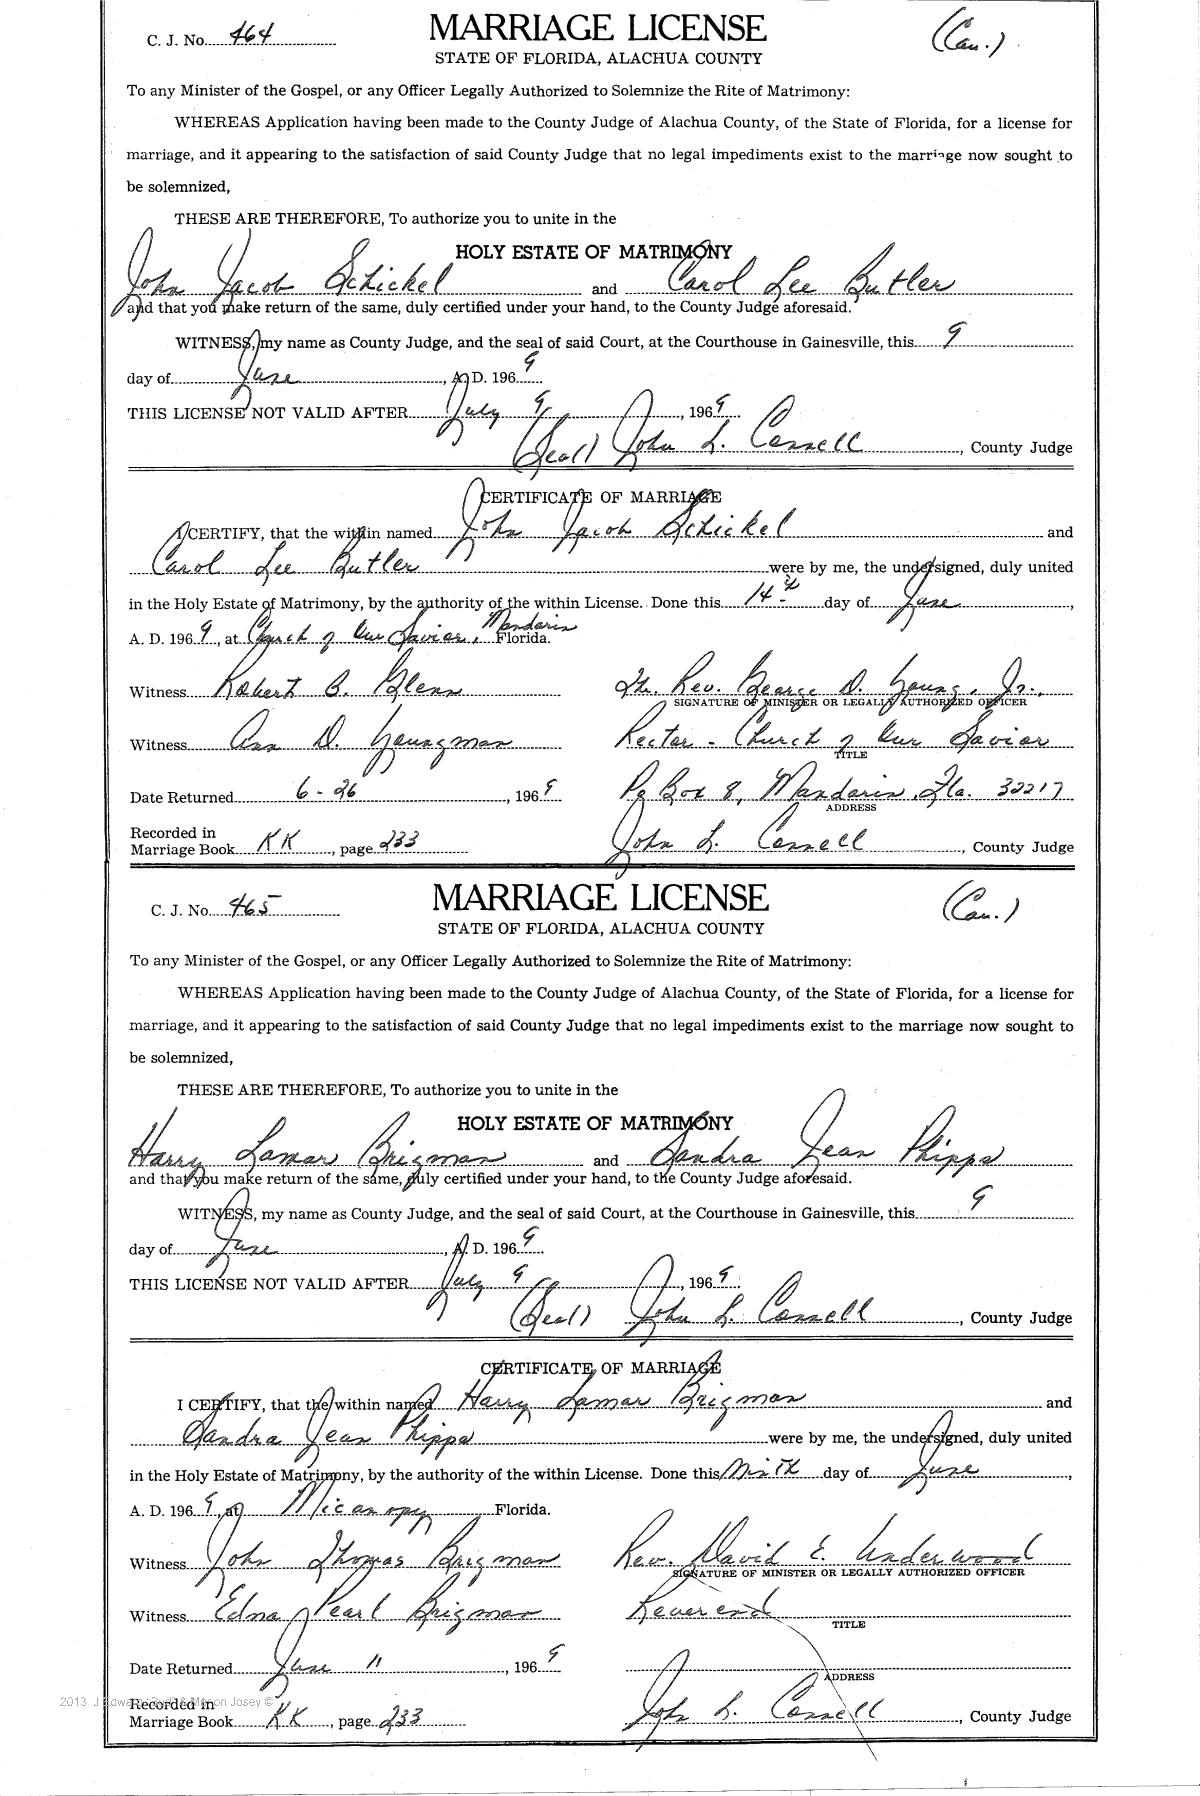 C. J. No. 464
MARRIAGE LICENSE
(Cau.)
STATE OF FLORIDA, ALACHUA COUNTY
To any Minister of the Gospel, or any Officer Legally Authorized to Solemnize the Rite of Matrimony:
WHEREAS Application having been made to the County Judge of Alachua County, of the State of Florida, for a license for
marriage, and it appearing to the satisfaction of said County Judge that no legal impediments exist to the marriage now sought to
be solemnized,
THESE ARE THEREFORE, To authorize you to unite in the
HOLY ESTATE OF MATRIMONY
John Jacob Schickel and Carol Lee Butler
and that you make return of the same, duly certified under your hand, to the County Judge aforesaid.
WITNESS, my name as County Judge, and the seal of said Court, at the Courthouse in Gainesville, this 9
day of June, A. D. 1969
THIS LICENSE NOT VALID AFTER July 9, 1969
(Seal) John L. Connell, County Judge
CERTIFICATE OF MARRIAGE
I CERTIFY, that the within named John Jacob Schickel and
Carol Lee Butler were by me, the undersigned, duly united
in the Holy Estate of Matrimony, by the authority of the within License. Done this 14th day of June,
A. D. 1969, at Church of Our Savior, Mandarin Florida.
Witness Robert B. Glenn The Rev. George D. Young, Jr.,
SIGNATURE OF MINISTER OR LEGALLY AUTHORIZED OFFICER
Witness Ann D. Youngman Rector - Church of Our Savior
TITLE
Date Returned 6-26, 1969 Po Box 8, Mandarin, Fla. 32217
ADDRESS
Recorded in
Marriage Book KK, page 233 John L. Connell, County Judge
C. J. No. 465
MARRIAGE LICENSE
(Cau.)
STATE OF FLORIDA, ALACHUA COUNTY
To any Minister of the Gospel, or any Officer Legally Authorized to Solemnize the Rite of Matrimony:
WHEREAS Application having been made to the County Judge of Alachua County, of the State of Florida, for a license for
marriage, and it appearing to the satisfaction of said County Judge that no legal impediments exist to the marriage now sought to
be solemnized,
THESE ARE THEREFORE, To authorize you to unite in the
HOLY ESTATE OF MATRIMONY
Harry Lamar Brigman and Sandra Jean Phipps
and that you make return of the same, duly certified under your hand, to the County Judge aforesaid.
WITNESS, my name as County Judge, and the seal of said Court, at the Courthouse in Gainesville, this 9
day of June, A. D. 1969
THIS LICENSE NOT VALID AFTER July 9, 1969
(Seal) John L. Connell, County Judge
CERTIFICATE OF MARRIAGE
I CERTIFY, that the within named Harry Lamar Brigman and
Sandra Jean Phipps were by me, the undersigned, duly united
in the Holy Estate of Matrimony, by the authority of the within License. Done this Ninth day of June,
A. D. 1969, at Micanopy Florida.
Witness John Thomas Brigman Rev. David E. Underwood
SIGNATURE OF MINISTER OR LEGALLY AUTHORIZED OFFICER
Witness Edna Pearl Brigman Reverend
TITLE
Date Returned June 11, 1969
ADDRESS
Recorded in
Marriage Book KK, page 233 John L. Connell, County Judge